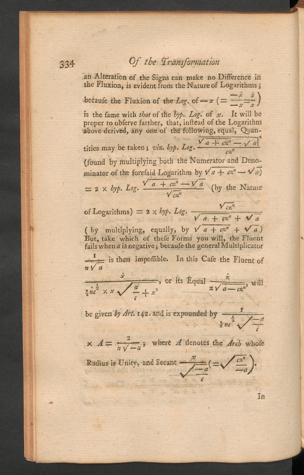 334 Of the Transformation
an Alteration of the Signs can make no Difference in
the Fluxion, is evident from the Nature of Logarithms;
because the Fluxion of the Log. of −x (= −ẋ/−x = ẋ/x)
is the same with that of the hyp. Log. of x. It will be
proper to observe farther, that, instead of the Logarithm
above derived, any one of the following, equal, Quan-
tities may be taken; viz. hyp. Log.
(found by multiplying both the Numerator and Deno-
minator of the foresaid Logarithm by √a + cxⁿ − √a)
= 2 × hyp. Log. (√a + cxⁿ − √a)/√cxⁿ (by the Nature
of Logarithms) = 2 × hyp. Log. √cxⁿ/(√a + cxⁿ + √a)
(by multiplying, equally, by √a + cxⁿ + √a)
But, take which of these Forms you will, the Fluent
fails when a is negative; because the general Multiplicator
1/n√a is then impossible. In this Case the Fluent of
or its Equal will
be given by Art. 142. and is expounded by
× A = 2/n√−a; where A denotes the Arch whose
Radius is Unity, and Secant
In